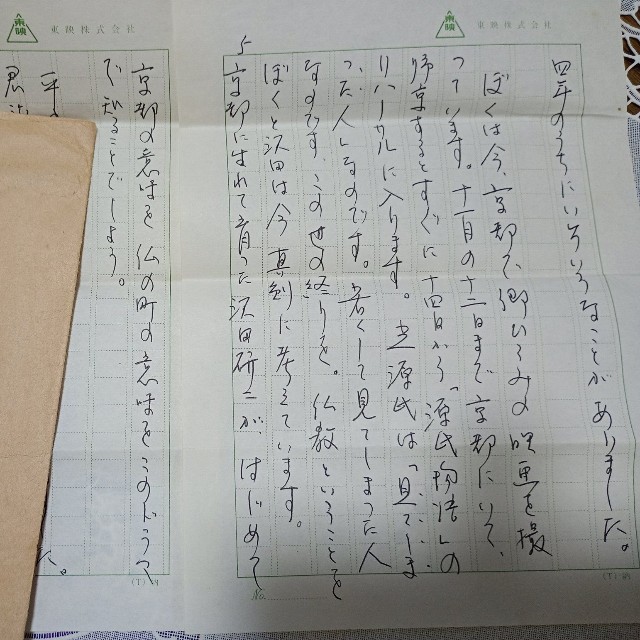 東映 東映株式会社
四年のうちにいろいろなことがありました。
ぼくは今、京都で郷ひろみの映画を撮
っています。十一月の十二日まで京都にいて、
帰京するとすぐに十四日から「源氏物語」の
リハーサルに入ります。光源氏は「見てしま
った人」なのです。若くして見てしまった人
なのです、この世の終りを。仏教ということを
ぼくと沢田は今真剣に考えています。
京都に生れて育った沢田研二が、はじめて
5
東映 東映株式会社
京都の意味を仏の町の意味をこのドラマ
で知ることでしょう。